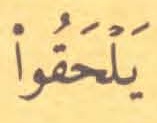 يَلْحَقُواْ